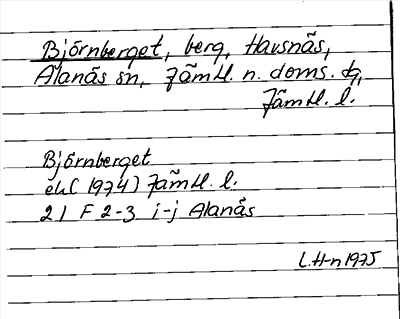 Björnberget, berg, Havsnäs,
Alanäs sn, Jämtl. n. doms. tg,
Jämtl. l.
Björnberget
ek (1974) Jämtl. l.
21 F 2-3 i-j Alanäs
L.H-n 1975